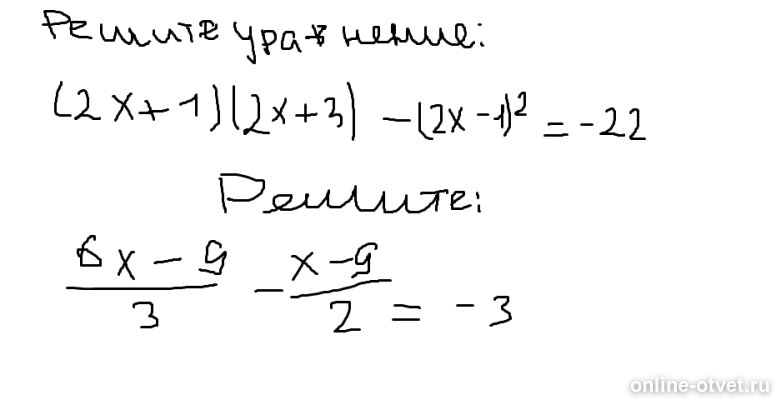 Решите уравнение:
(2x+1)(2x+3) -(2x-1)² = -22
Решите:
6x-9/3 - x-9/2 = -3
online-otvet.ru